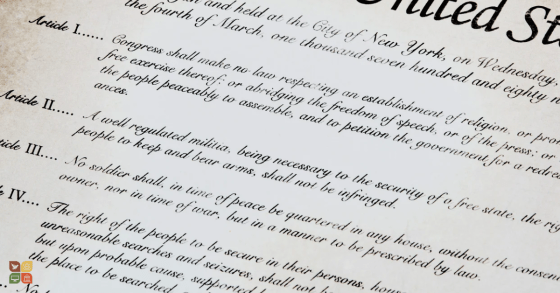 United St
and held at the City of New York, on Wednesday,
the fourth of March, one thousand seven hundred and eighty
Article I...... Congress shall make no law respecting an establishment of religion, or pro
free exercise thereof; or abridging the freedom of speech, or of the press; or
the people peaceably to assemble, and to petition the government for a redre
ances.
Article II..... A well regulated militia, being necessary to the security of a free state, the rig
people to keep and bear arms, shall not be infringed.
ticle III.... No soldier shall, in time of peace be quartered in any house, without the consen
owner, nor in time of war, but in a manner to be prescribed by law.
IV.... The right of the people to be secure in their persons, hous
unreasonable searches and seizures, shall not b
but upon probable cause, supported
the place to be searched,